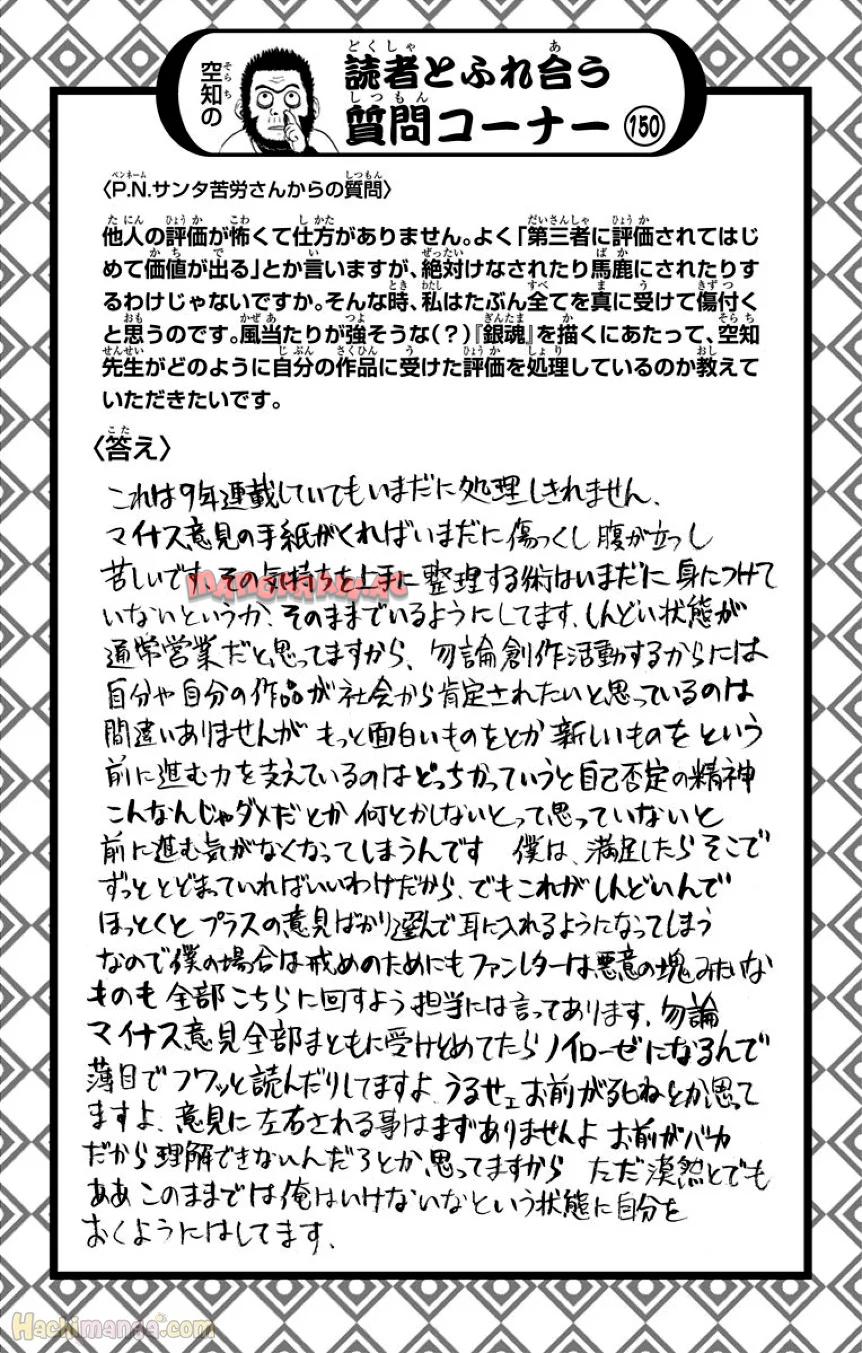 空知の
読者とふれ合う
質問コーナー 150
〈P.N.サンタ苦労さんからの質問〉
他人の評価が怖くて仕方がありません。よく「第三者に評価されてはじ
めて価値が出る」とか言いますが、絶対けなされたり馬鹿にされたりす
るわけじゃないですか。そんな時、私はたぶん全てを真に受けて傷付く
と思うのです。風当たりが強そうな(?)『銀魂』を描くにあたって、空知
先生がどのように自分の作品に受けた評価を処理しているのか教えて
いただきたいです。
〈答え〉
これは9年連載していてもいまだに処理しきれません、
マイナス意見の手紙がくればいまだに傷つくし腹が立つし
苦しいです その気持ちを上手に整理する術はいまだに身につけて
いないというか、そのままでいるようにしてます、しんどい状態が
通常営業だと思ってますから、勿論創作活動するからには
自分や自分の作品が社会から肯定されたいと思っているのは
間違いありませんが もっと面白いものをとか新しいものをという
前に進む力を支えているのはどっちかっていうと自己否定の精神
こんなんじゃダメだとか何とかしないとって思っていないと
前に進む気がなくなってしまうんです 僕は、満足したらそこで
ずっととどまっていればいいわけだから、でもこれがしんどいんで
ほっとくとプラスの意見ばかり選んで耳に入れるようになってしまう
なので僕の場合は戒めのためにもファンレターは悪意の塊みたいな
ものも全部こちらに回すよう担当には言ってあります、勿論
マイナス意見全部まともに受けとめてたらノイローゼになるんで
薄目でフワッと読んだりしてますよ、うるせェお前が死ねとか思って
ますよ、意見に左右される事はまずありませんよ お前がバカ
だから理解できないんだろとか思ってますから ただ漠然とでも
ああこのままでは俺はいけないなという状態に自分を
おくようにはしてます、
Hachimanga.com